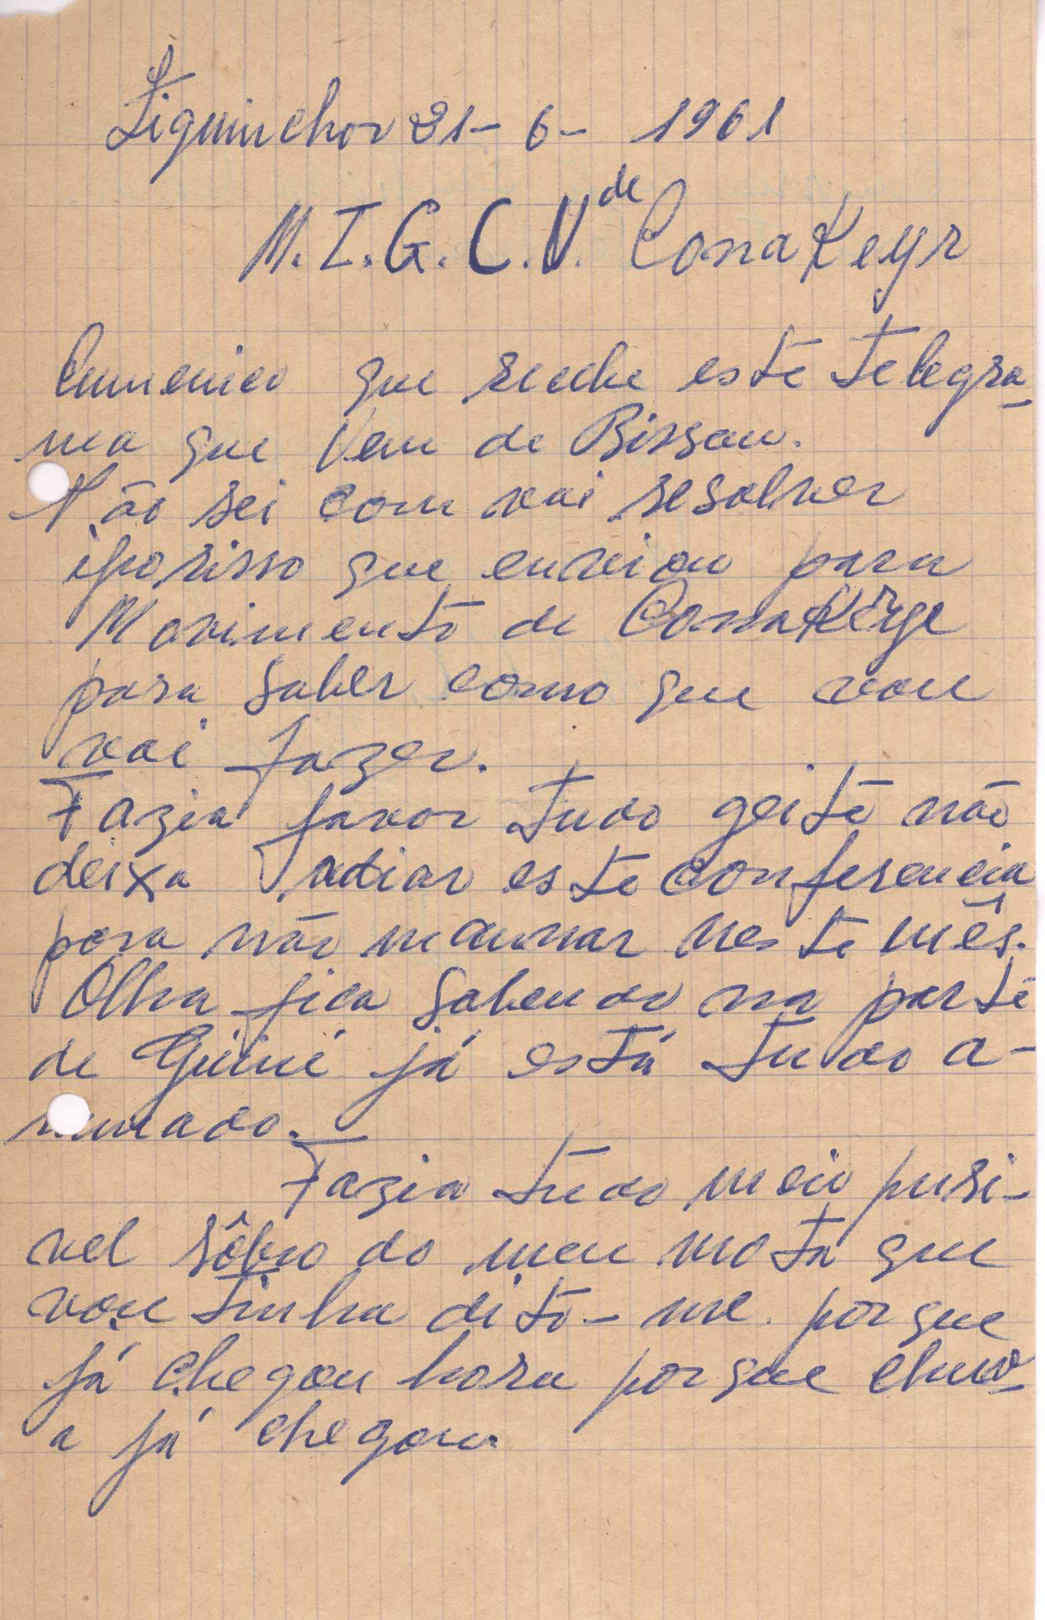 Ziguinchor 21-6- 1961
M.I.G.C.V. de Conakeyr
Cumenico que recebe este telegra-
ma que vem de Bissau.
Não sei com vai resolver
iporisso que enviou para
Movimento de Conakrye
para saber como que voce
vai fazer.
Fazia favor tudo geito não
deixa adiar este conferencia
para não maunar neste mês.
Olha fica sabendo na parte
de Guiné já está tudo a-
rumado.
Fazia tudo meio pusi-
vel sôbro do meu mota que
voce tinha dito-me. porque
já chegou hora porque chuv-
a já chegou